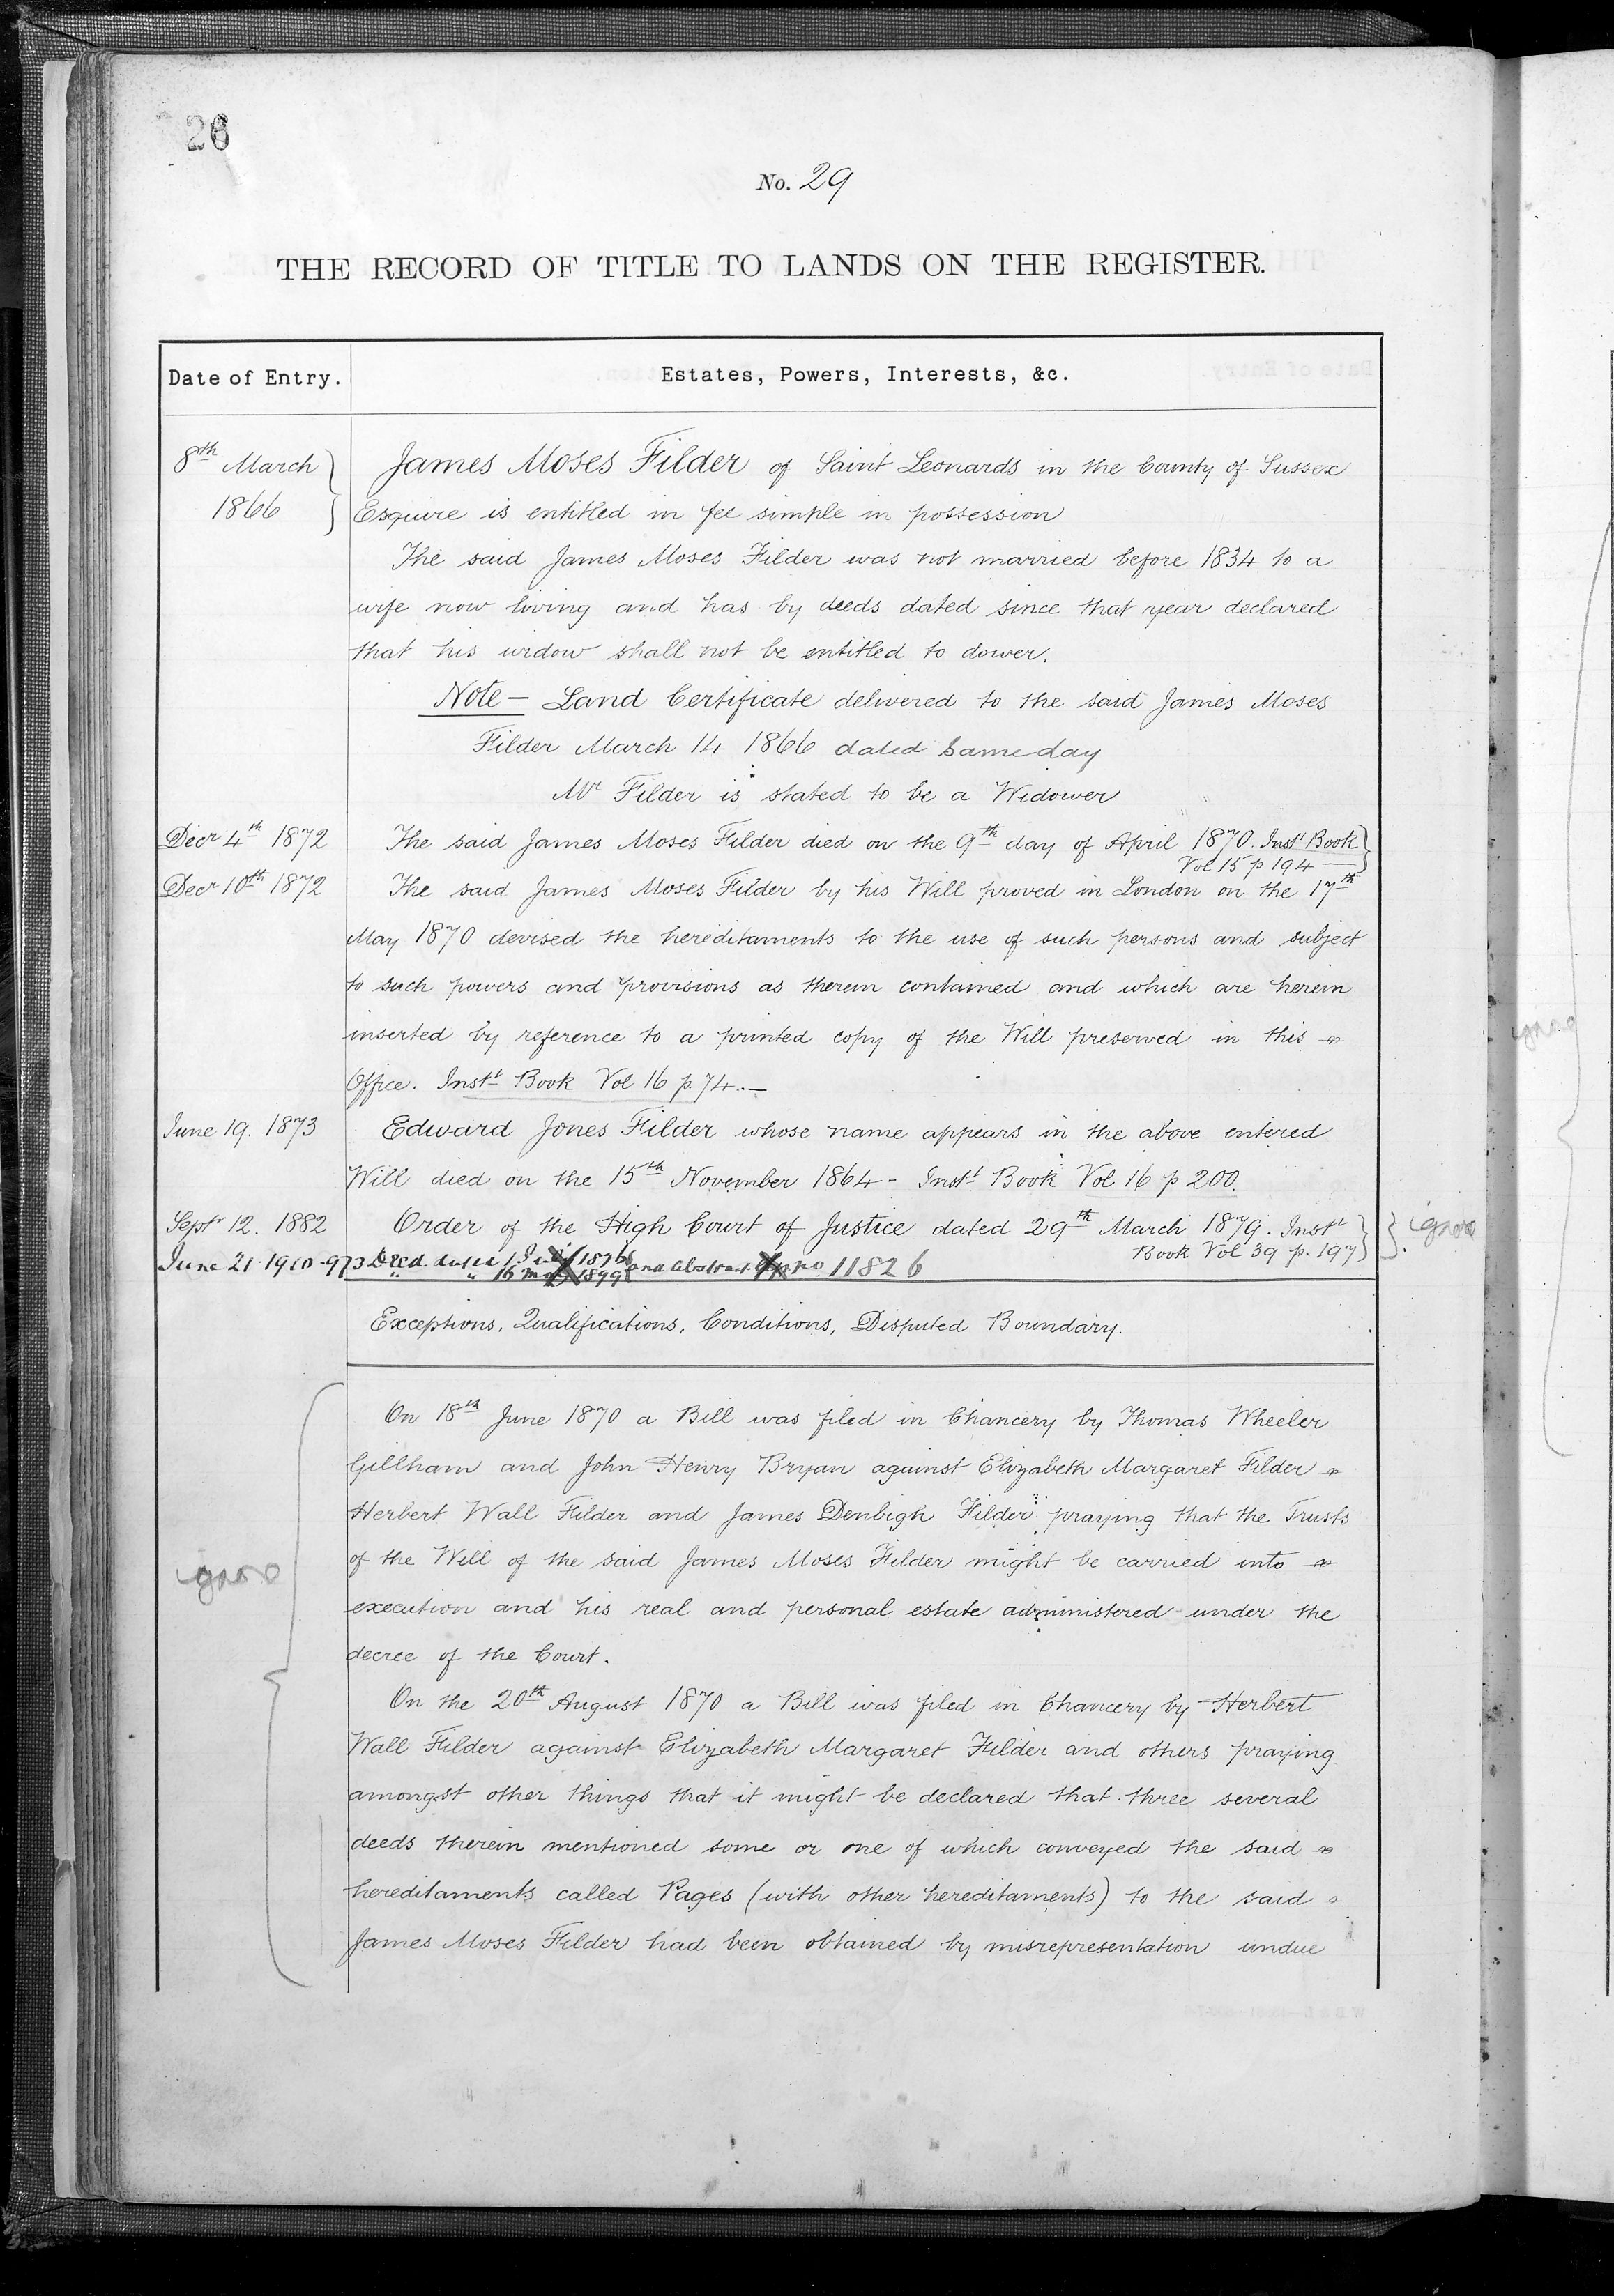 26
No. 29
THE RECORD OF TITLE TO LANDS ON THE REGISTER.
Date of Entry.
Estates, Powers, Interests, &c.
8th March
1866
James Moses Filder of Saint Leonards in the County of Sussex
Esquire is entitled in fee simple in possession
The said James Moses Filder was not married before 1834 to a
wife now living and has by deeds dated since that year declared
that his widow shall not be entitled to dower.
Note — Land Certificate delivered to the said James Moses
Filder March 14 1866 dated same day
Mr Filder is stated to be a Widower
Decr 4th 1872 The said James Moses Filder died on the 9th day of April 1870. Inst Book
Vol 15 p 194 —
Decr 10th 1872 The said James Moses Filder by his Will proved in London on the 17th
May 1870 devised the hereditaments to the use of such persons and subject
to such powers and provisions as therein contained and which are herein
inserted by reference to a printed copy of the Will preserved in this
Office. Inst Book Vol 16 p. 74. —
June 19. 1873 Edward Jones Filder whose name appears in the above entered
Will died on the 15th November 1864 - Inst Book Vol 16 p 200.
Septr 12. 1882 Order of the High Court of Justice dated 29th March 1879. Inst
Book Vol 39 p. 197
June 21. 1910 - 973 Deed dated 1 1876 and Abstract no. 11826
" " 16 1899
Exceptions, Qualifications, Conditions, Disputed Boundary.
On 18th June 1870 a Bill was filed in Chancery by Thomas Wheeler
Gillham and John Henry Bryan against Elizabeth Margaret Filder
Herbert Wall Filder and James Denbigh Filder praying that the Trusts
of the Will of the said James Moses Filder might be carried into
execution and his real and personal estate administered under the
decree of the Court.
On the 20th August 1870 a Bill was filed in Chancery by Herbert
Wall Filder against Elizabeth Margaret Filder and others praying
amongst other things that it might be declared that three several
deeds therein mentioned some or one of which conveyed the said
hereditaments called Pages (with other hereditaments) to the said
James Moses Filder had been obtained by misrepresentation undue